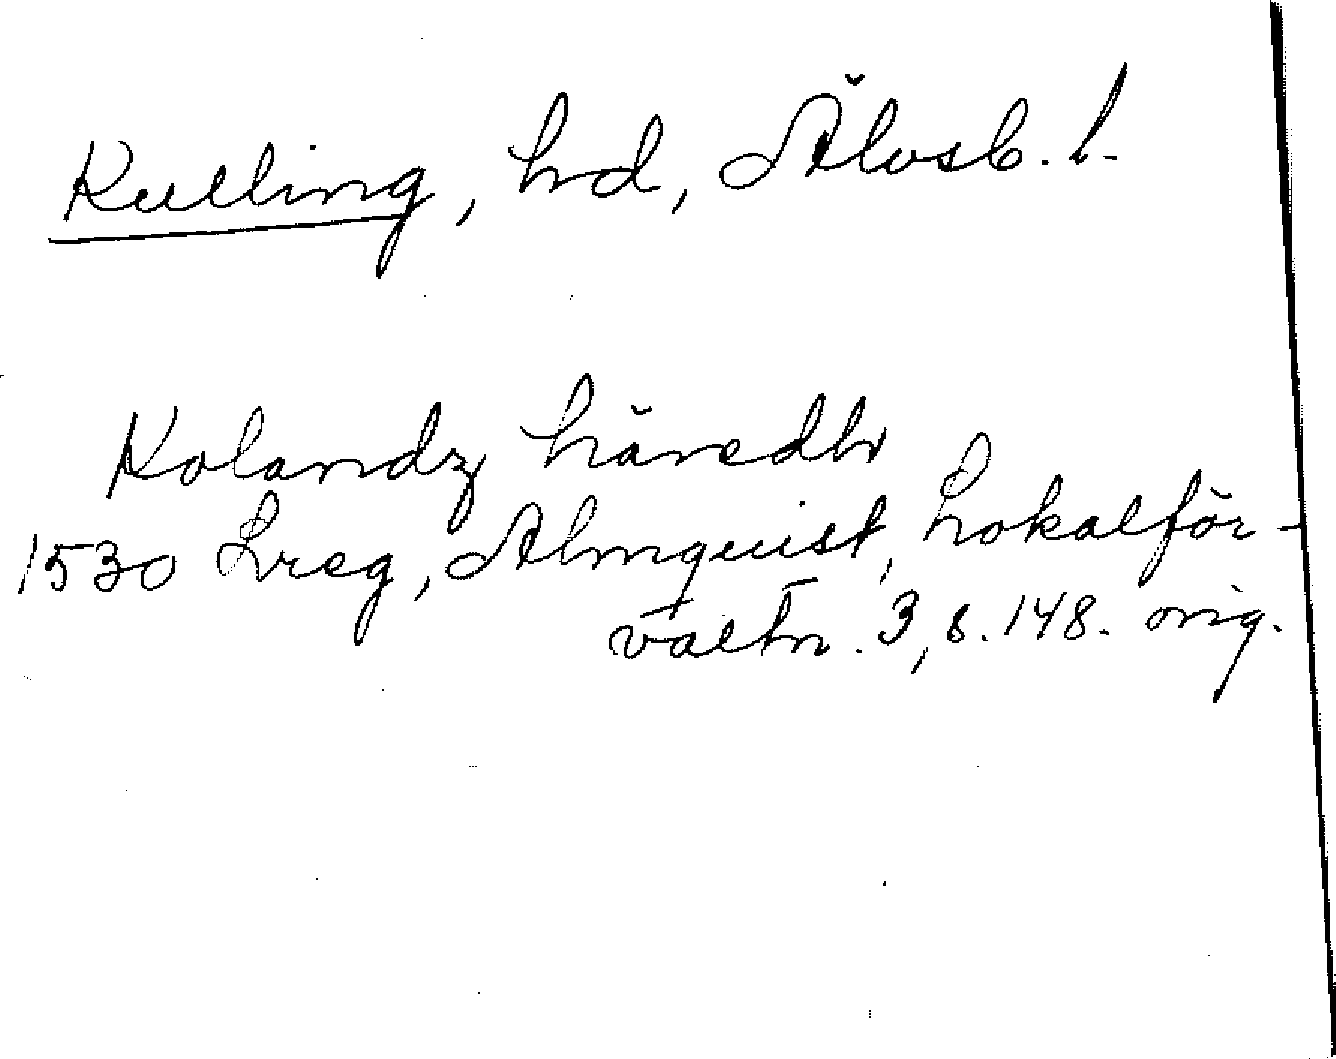 Kulling, hd, Älvsb. l.
Kolandz häredhr
1530 Lreg, Almquist, Lokalför-
valtn. 3, s. 148. orig.